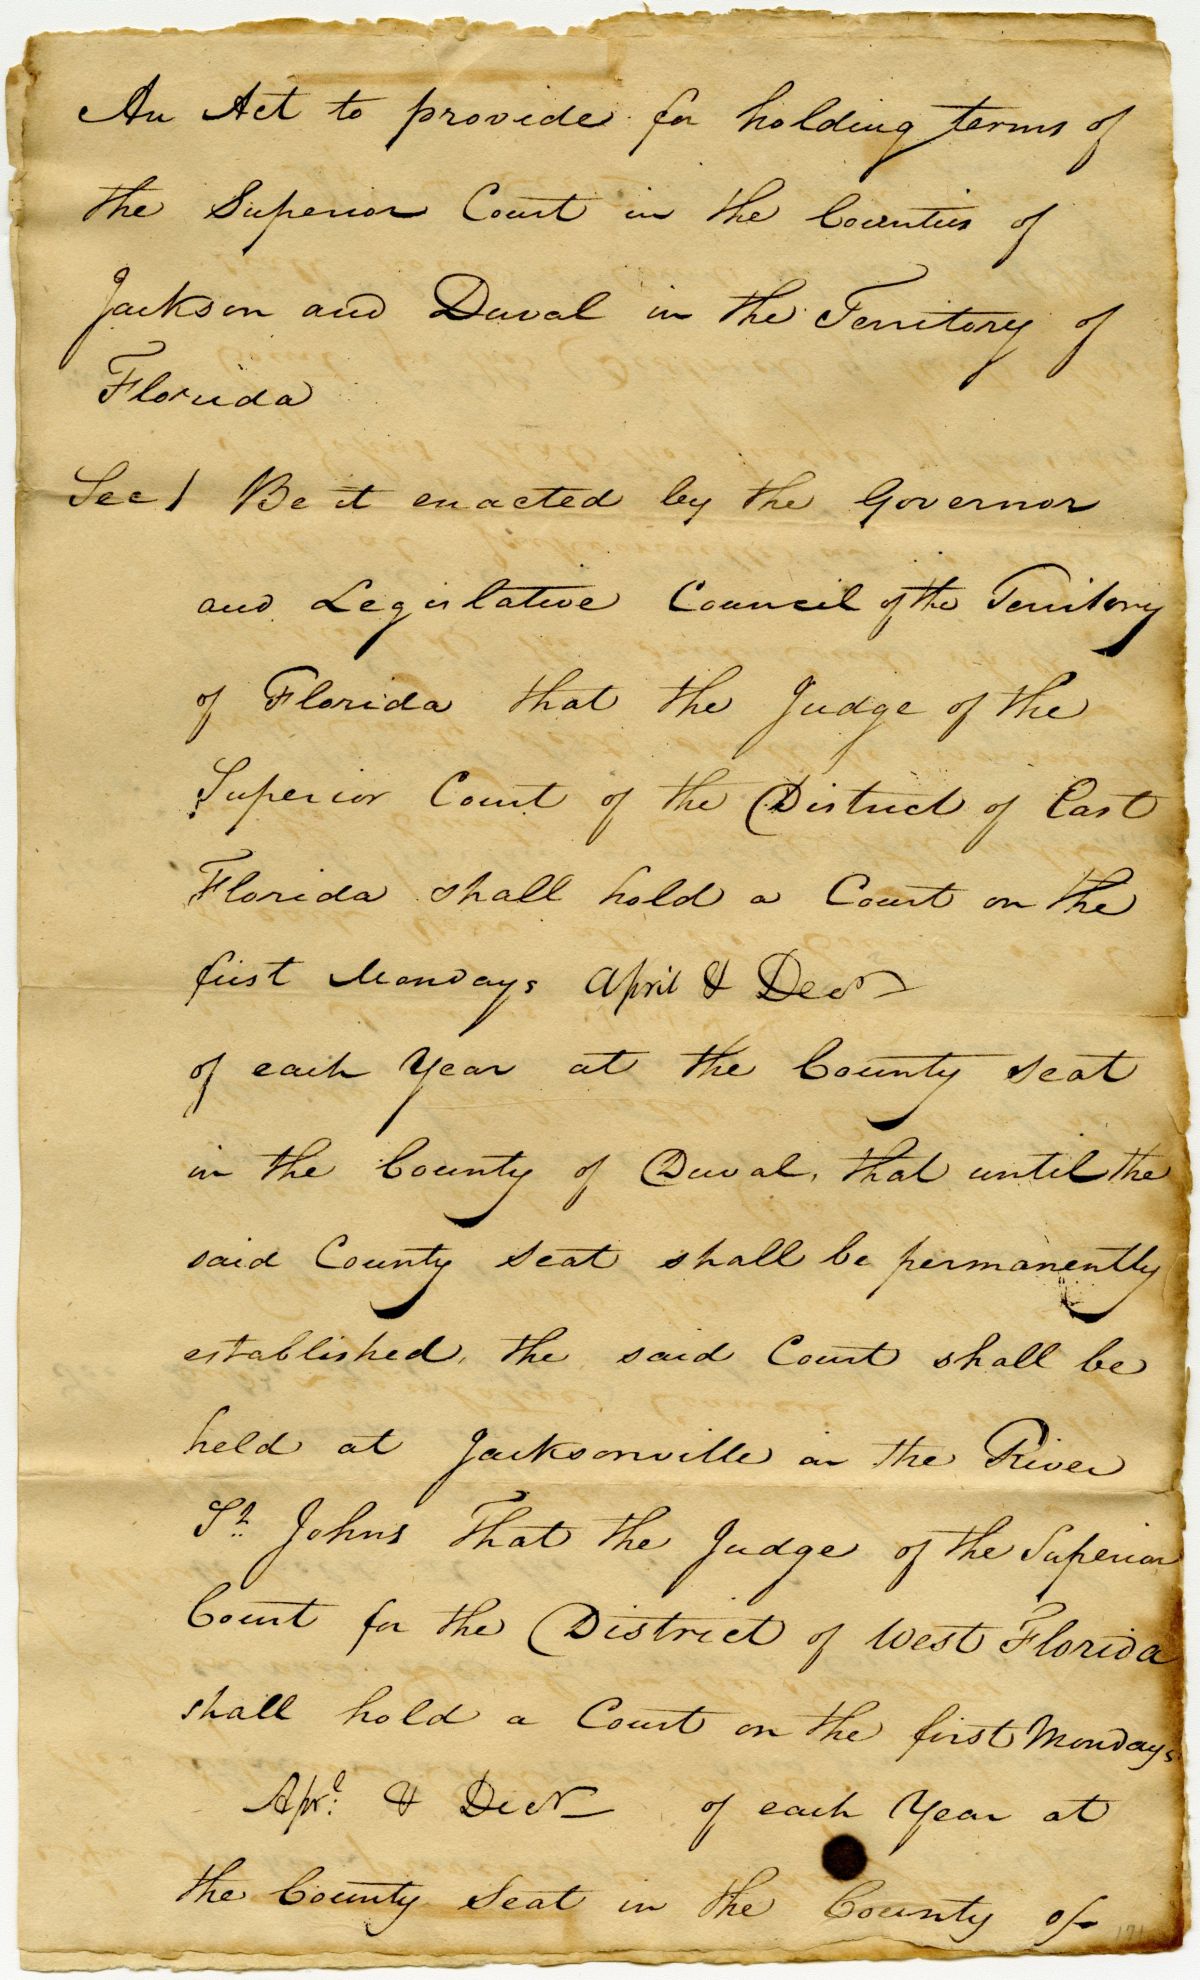 An Act to provide for holding terms of
the Superior Court in the Counties of
Jackson and Duval in the Territory of
Florida
Sec 1 Be it enacted by the Governor
and Legislative Council of the Territory
of Florida that the Judge of the
Superior Court of the District of East
Florida shall hold a Court on the
first Mondays April & Decr
of each Year at the County seat
in the County of Duval, that until the
said County seat shall be permanently
established, the said Court shall be
held at Jacksonville on the River
St. Johns That the Judge of the Superior
Court for the District of West Florida
shall hold a Court on the first Mondays
Aprl. & Decr of each Year at
the County Seat in the County of
171